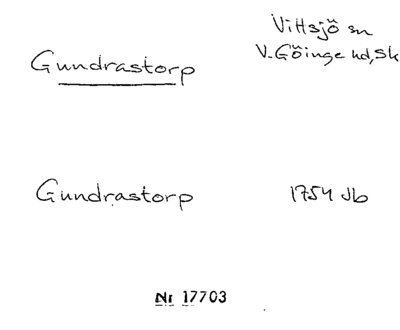 Vittsjö sn
V. Göinge hd, Sk
Gundrastorp
Gundrastorp 1754 Jb
Nr 17703